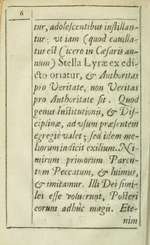 6
tur, adolescentibus instillan-
tur: ut iam (quod cavilla-
tur est Cicero in Cæsaris an-
num) Stella Lyræ ex edi-
cto oriatur, & Authoritas
pro Veritate, non Veritas
pro Authoritate sit. Quod
genus Institutionis, & Dis-
ciplinæ, ad usum præsentem
egregie valet; sed idem me-
liorum indicit exilium. Ni-
mirum primorum Paren-
tum Peccatum, & luimus,
& imitamur. Illi Dei simi-
les esse voluerunt, Posteri
eorum adhuc magis. Ete-
nim